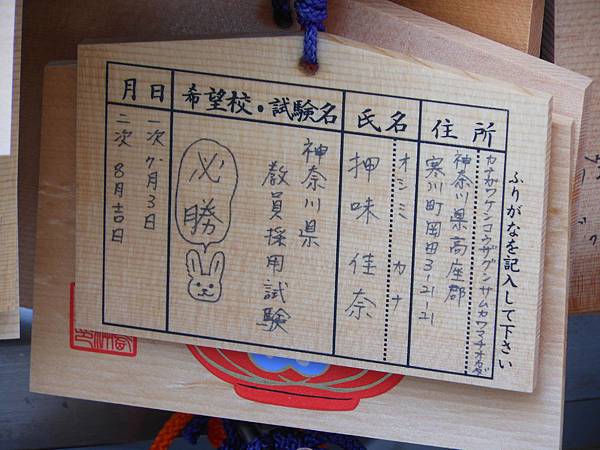 ふりがなを記入して下さい
住所
カナガワケンコウザグンサムカワマチオカダ
神奈川県高座郡
寒川町岡田3-21-21
氏名
オシミ カナ
押味佳奈
希望校・試験名
神奈川県
教員採用試験
必勝
月日
一次7月3日
二次8月吉日